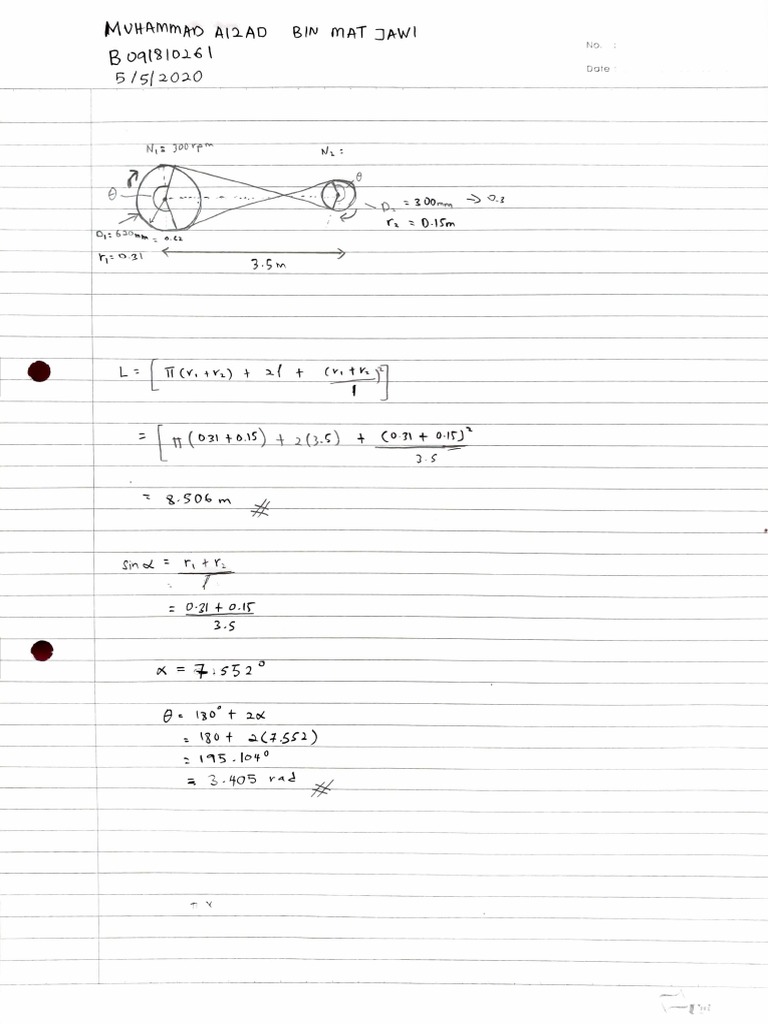 MUHAMMAD AIZAD BIN MAT JAWI
B091810261
5/5/2020
No. :
Date :
N₁ = 300rpm
N₂ :
θ
θ
D₂ = 300mm → 0.3
r₂ = 0.15m
D₁ = 620mm = 0.62
r₁ = 0.31
3.5m
L = [π(r₁ + r₂) + 2l + (r₁ + r₂)²/l]
= [π(0.31 + 0.15) + 2(3.5) + (0.31 + 0.15)²/3.5
= 8.506 m #
sin α = r₁ + r₂/l
= 0.31 + 0.15/3.5
α = 7.552°
θ = 180° + 2α
= 180 + 2(7.552)
= 195.104°
= 3.405 rad #